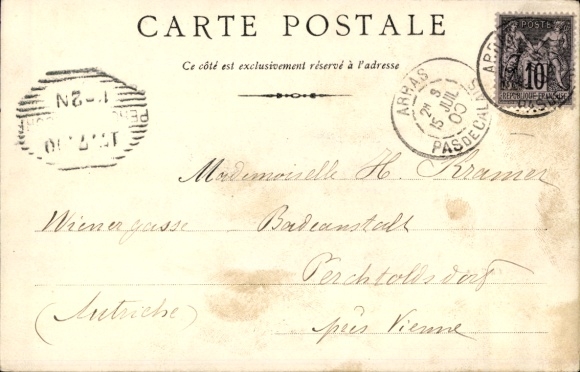 CARTE POSTALE
Ce côté est exclusivement réservé à l'adresse
POSTE
10
REPUBLIQUE FRANÇAISE
ARRAS
2E 3
15 JUIL
00
PAS DE CALAIS
1-2N
17.7.00
Mademoiselle H. Kramer
Wienergasse Badeanstalt
Perchtoldsdorf
(Autriche) près Vienne